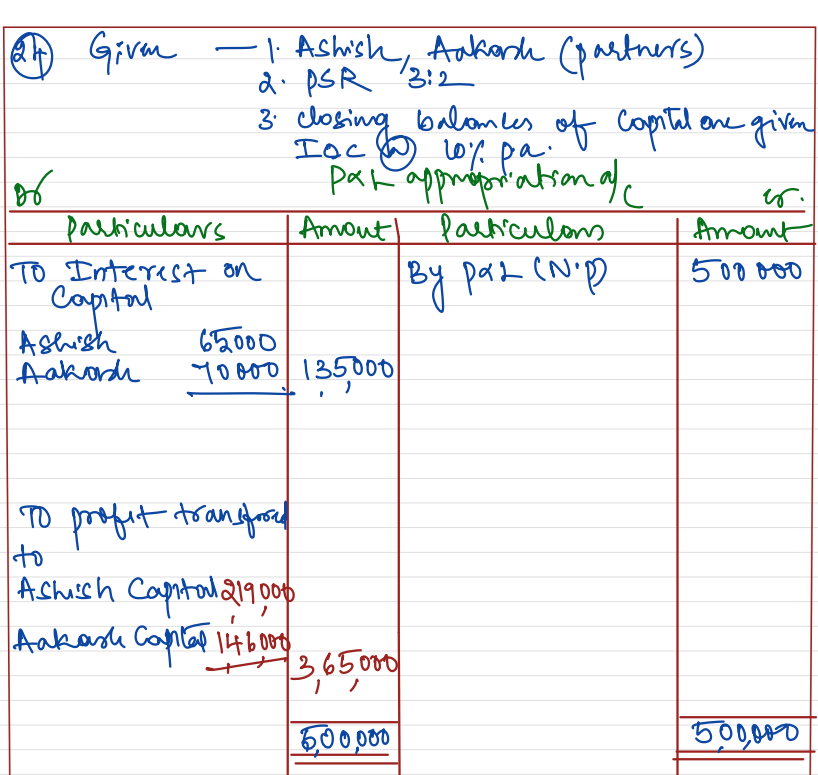 24 Given — 1. Ashish, Aakash (partners)
2. PSR 3:2
3. closing balances of Capital are given
IOC @ 10% p.a.
P&L appropriation a/c
Dr cr.
Particulars Amout Particulars Amount
To Interest on By P&L (N.P) 500000
Capital
Ashish 65000
Aakash 70000 135,000
To profit transfered
to
Ashish Capital 219,000
Aakash Capital 146,000
3,65,000
5,00,000 5,00,000